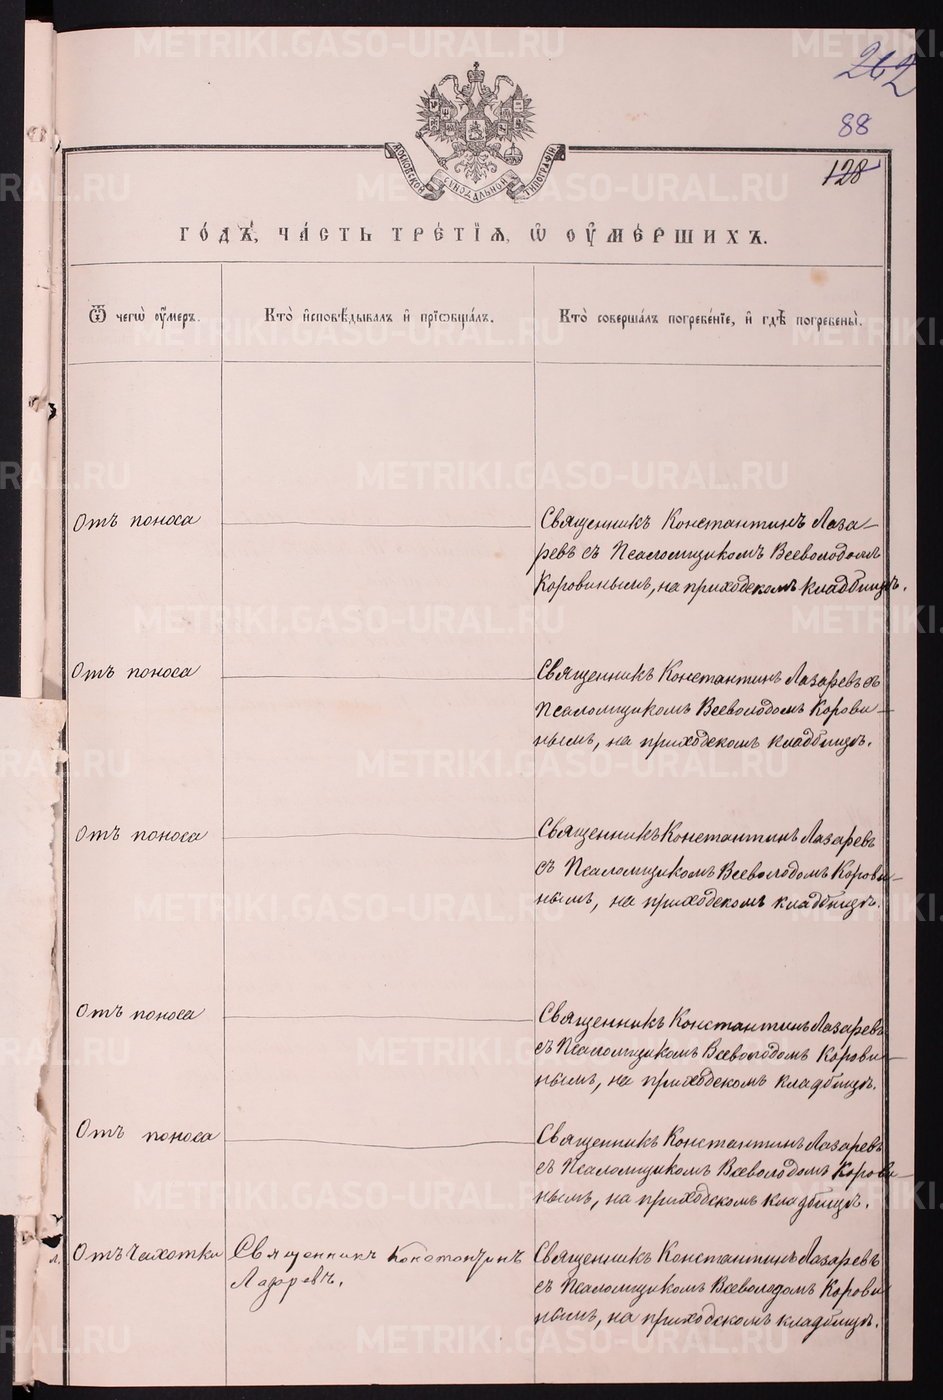 METRIKI.GASO-URAL.RU
262
88
128
МОСКОВСКОЙ СУНОДАЛЬНОЙ ТИПОГРАФІИ
ГО́ДЪ, ЧА́СТЬ ТРЕ́ТІѦ, Ѡ҆ ОУ҆МЕ́РШИХЪ.
Ѿ чегѡ̀ оу҆́меръ.
Кто̀ и҆сповѣ́дывалъ и҆ прїѡбща́лъ.
Кто̀ соверша́лъ погребе́нїе, и҆ гдѣ̀ погребены̀.
Отъ поноса
Священникъ Константинъ Лаза-
ревъ съ Псаломщикомъ Всеволодомъ
Коровинымъ, на приходскомъ кладбищѣ.
Отъ поноса
Священникъ Константинъ Лазаревъ съ
Псаломщикомъ Всеволодомъ Корови-
нымъ, на приходскомъ кладбищѣ.
Отъ поноса
Священникъ Константинъ Лазаревъ
съ Псаломщикомъ Всеволодомъ Корови-
нымъ, на приходскомъ кладбищѣ.
Отъ поноса
Священникъ Константинъ Лазаревъ
съ Псаломщикомъ Всеволодомъ Корови-
нымъ, на приходскомъ кладбищѣ.
Отъ поноса
Священникъ Константинъ Лазаревъ
съ Псаломщикомъ Всеволодомъ Корови-
нымъ, на приходскомъ кладбищѣ.
Отъ чахотки
Священникъ Константинъ
Лазаревъ.
Священникъ Константинъ Лазаревъ
съ Псаломщикомъ Всеволодомъ Корови
нымъ, на приходскомъ кладбищѣ.